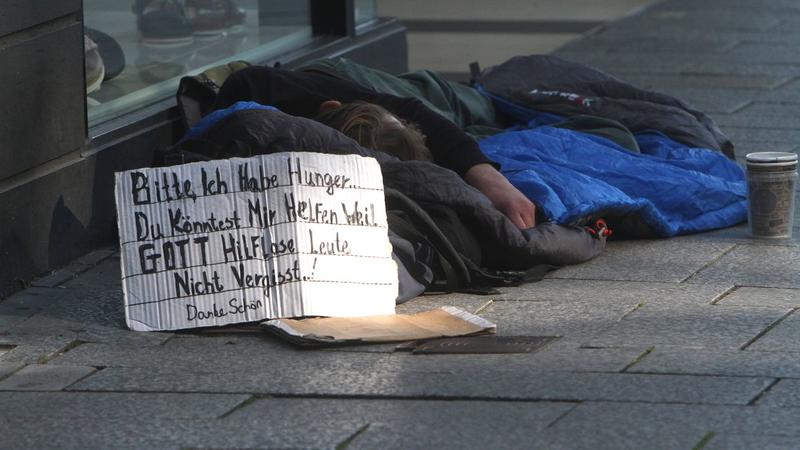 Bitte, Ich Habe Hunger...
Du Könntest Mir Helfen Weil
GOTT HilFLose Leute
Nicht Vergisst..!
Danke Schön